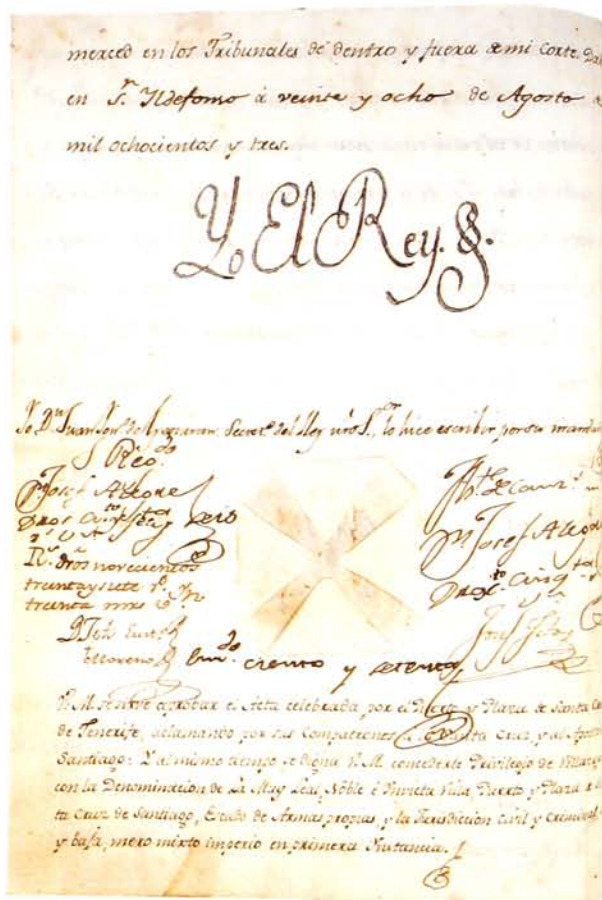 merced en los Tribunales de dentro y fuera de mi Corte. Da
en Sn. Yldefonso á veinte y ocho de Agosto
mil ochocientos y tres.
Yo El Rey.
Yo Dn Juan de Secreto. del Rey nro Sor, lo hice escribir por su mandad
Regdo
Josef Alegre
Dros
Rs. dros novecientos
treinta y siete rs. vn
treinta mrs
Josef Aleg
Dros
ciento y setenta
V. M. se sirve aprobar el Acta celebrada por el Puerto y Plaza de Santa C
de Tenerife, aclamando por sus Compatronos a la Santa Cruz, y al Aposto
Santiago: Y al mismo tiempo se digna V. M. concederle Privilegio de Villazgo
con la Denominacion de La Muy Leal, Noble é Invicta Villa, Puerto y Plaza de
ta Cruz de Santiago, Escudo de Armas propias, y la Jurisdiccion Civil y Criminal
y baja, mero mixto imperio en primera Instancia.